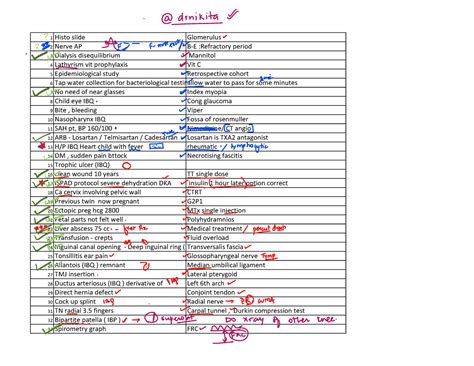 @ drnikita
1 Histo slide Glomerulus
2 Nerve AP B-E :Refractory period
3 Dialysis disequilibrium Mannitol
4 Lathyrism vit prophylaxis Vit C
5 Epidemiological study Retrospective cohort
6 Tap water collection for bacteriological testing allow water to pass for some minutes
7 No need of near glasses Index myopia
8 Child eye IBQ Cong glaucoma
9 Bite , bleeding Viper
10 Nasopharynx IBQ Fossa of rosenmuller
11 SAH pt, BP 160/100 CT angio
12 ARB - Losartan / Telmisartan / Cadesartan Losartan is TXA2 antagonist
13 H/P IBQ Heart child with fever rheumatic / lymphocytic
14 DM , sudden pain bttock Necrotising fascitis
15 Trophic ulcer (IBQ)
16 clean wound 10 years TT single dose
17 ISPAD protocol severe dehydration DKA insulin 1 hour later option correct
18 Ca cervix involving pelvic wall CTRT
19 Previous twin now pregnant G2P1
20 Ectopic preg hcg 2800 MTx single injection
21 Fetal parts not felt well Polyhydramnios
22 Liver abscess 75 cc Medical treatment
23 Transfusion - crepts Fluid overload
24 Inguinal canal opening - Deep inguinal ring Transversalis fascia
25 Tonsillitis ear pain Glossopharyngeal nerve
26 Allantois (IBQ ) remnant Median umbilical ligament
27 TMJ insertion Lateral pterygoid
28 Ductus arteriosus (IBQ ) derivative of Left 6th arch
29 Direct hernia defect Conjoint tendon
30 Cock up splint Radial nerve
31 TN radial 3.5 fingers Carpal tunnel Durkin compression test
32 Bipartite patella ( IBP ) Do xray of other knee
33 Spirometry graph FRC